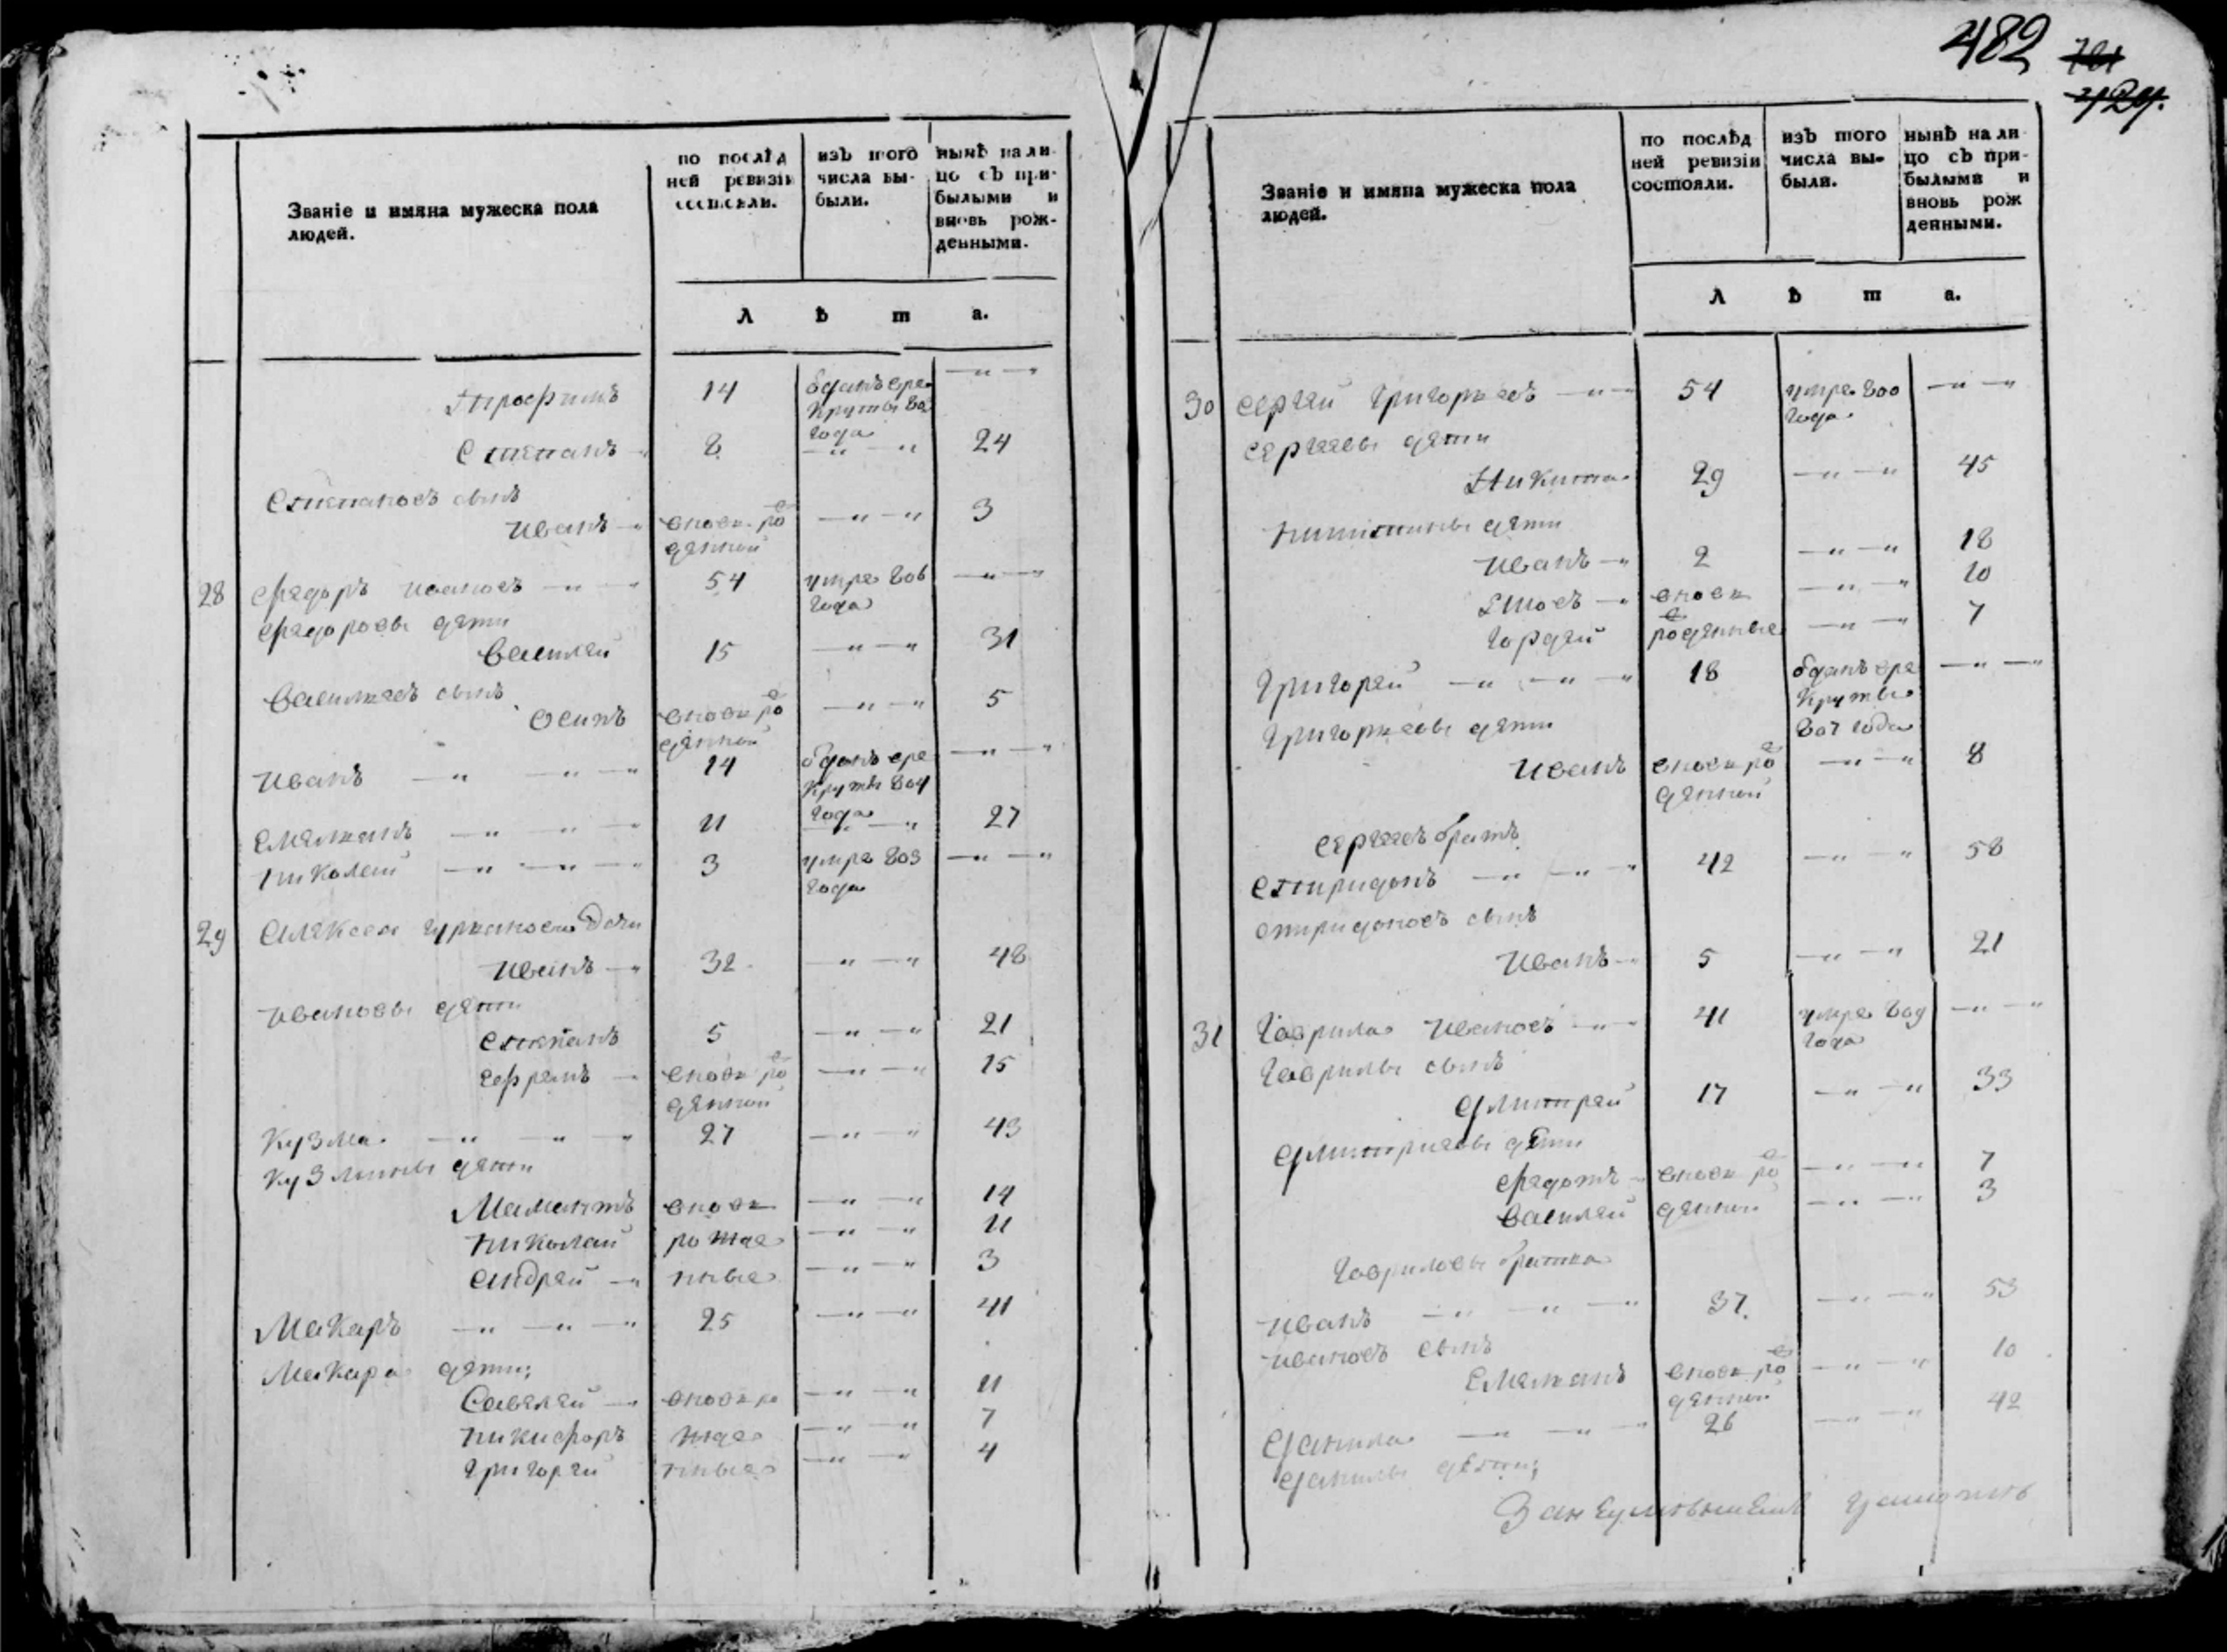 482
721
424.
Званіе и имяна мужеска пола
людей.
по послѣд
ней ревизіи
состояли.
изъ того
числа вы-
были.
нынѣ на ли
цо съ при-
былыми и
вновь рож-
денными.
Л ѣ т а.
Трофимъ 14 отданъ в ре
круты 80
года
Степанъ 8 24
Степановъ сынъ
Иванъ вновь ро 3
жденной
28 Федоръ Ивановъ 54 умре 806
года
Федоровы дети
Василей 15 31
Васильевъ сынъ
Осипъ вновь ро 5
жденной
Иванъ 14 отданъ в ре
круты 804
года
Емельянъ 11 27
Николай 3 умре 803
года
29 Алексея дети
Иванъ 32 48
Ивановы дети
Степанъ 5 21
Ефремъ вновь ро 15
жденной
Кузма 27 43
Кузмины дети
Мамантъ вновь 14
Николай рожде 11
Андрей нные 3
Макаръ 25 41
Макара дети;
Савелей вновь ро 11
Никифоръ жде 7
Григорей нные 4
Званіе и имяна мужеска пола
людей.
по послѣд
ней ревизіи
состояли.
изъ того
числа вы-
были.
нынѣ на ли
цо съ при-
былыми и
вновь рож
денными.
Л ѣ т а.
30 Сергей Григорьевъ 54 умре 800
года
Сергеевы дети
Никита 29 45
Никитины дети
Иванъ 2 18
вновь 10
Гордей рожденные 7
Григорей 18 отданъ в ре
круты
807 года
Григорьевы дети
Иванъ вновь ро 8
жденной
Сергеевъ братъ
Спиридонъ 42 58
Спиридоновъ сынъ
Иванъ 5 21
31 Гаврила Ивановъ 41 умре 809
года
Гаврилы сынъ
Дмитрей 17 33
Дмитриевы дети
Федотъ вновь ро 7
Василей жденной 3
Гавриловы братья
Иванъ 37 53
Ивановъ сынъ
Емельянъ вновь ро 10
жденной
Данила 26 42
Данилы дети;